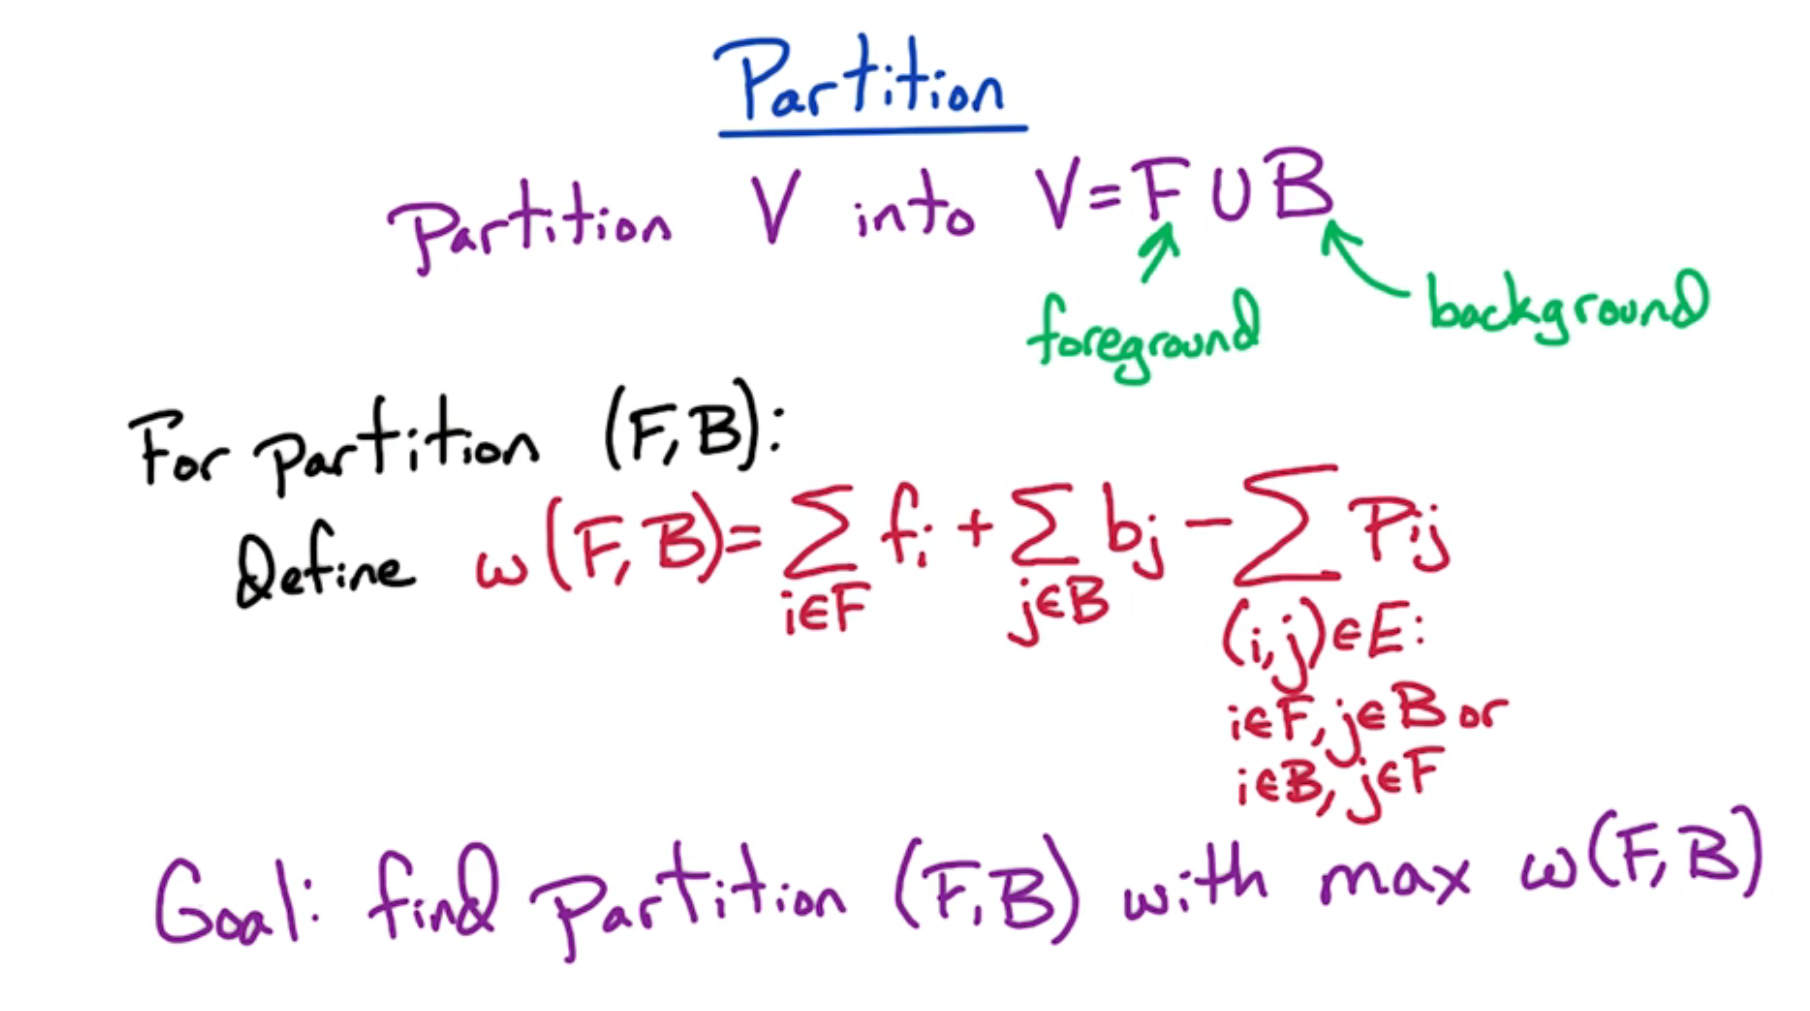 Partition
Partition V into V=F∪B
foreground
background
For partition (F,B):
Define w(F,B)= ∑ fi + ∑ bj − ∑ Pij
i∈F j∈B (i,j)∈E:
i∈F, j∈B or
i∈B, j∈F
Goal: find partition (F,B) with max w(F,B)